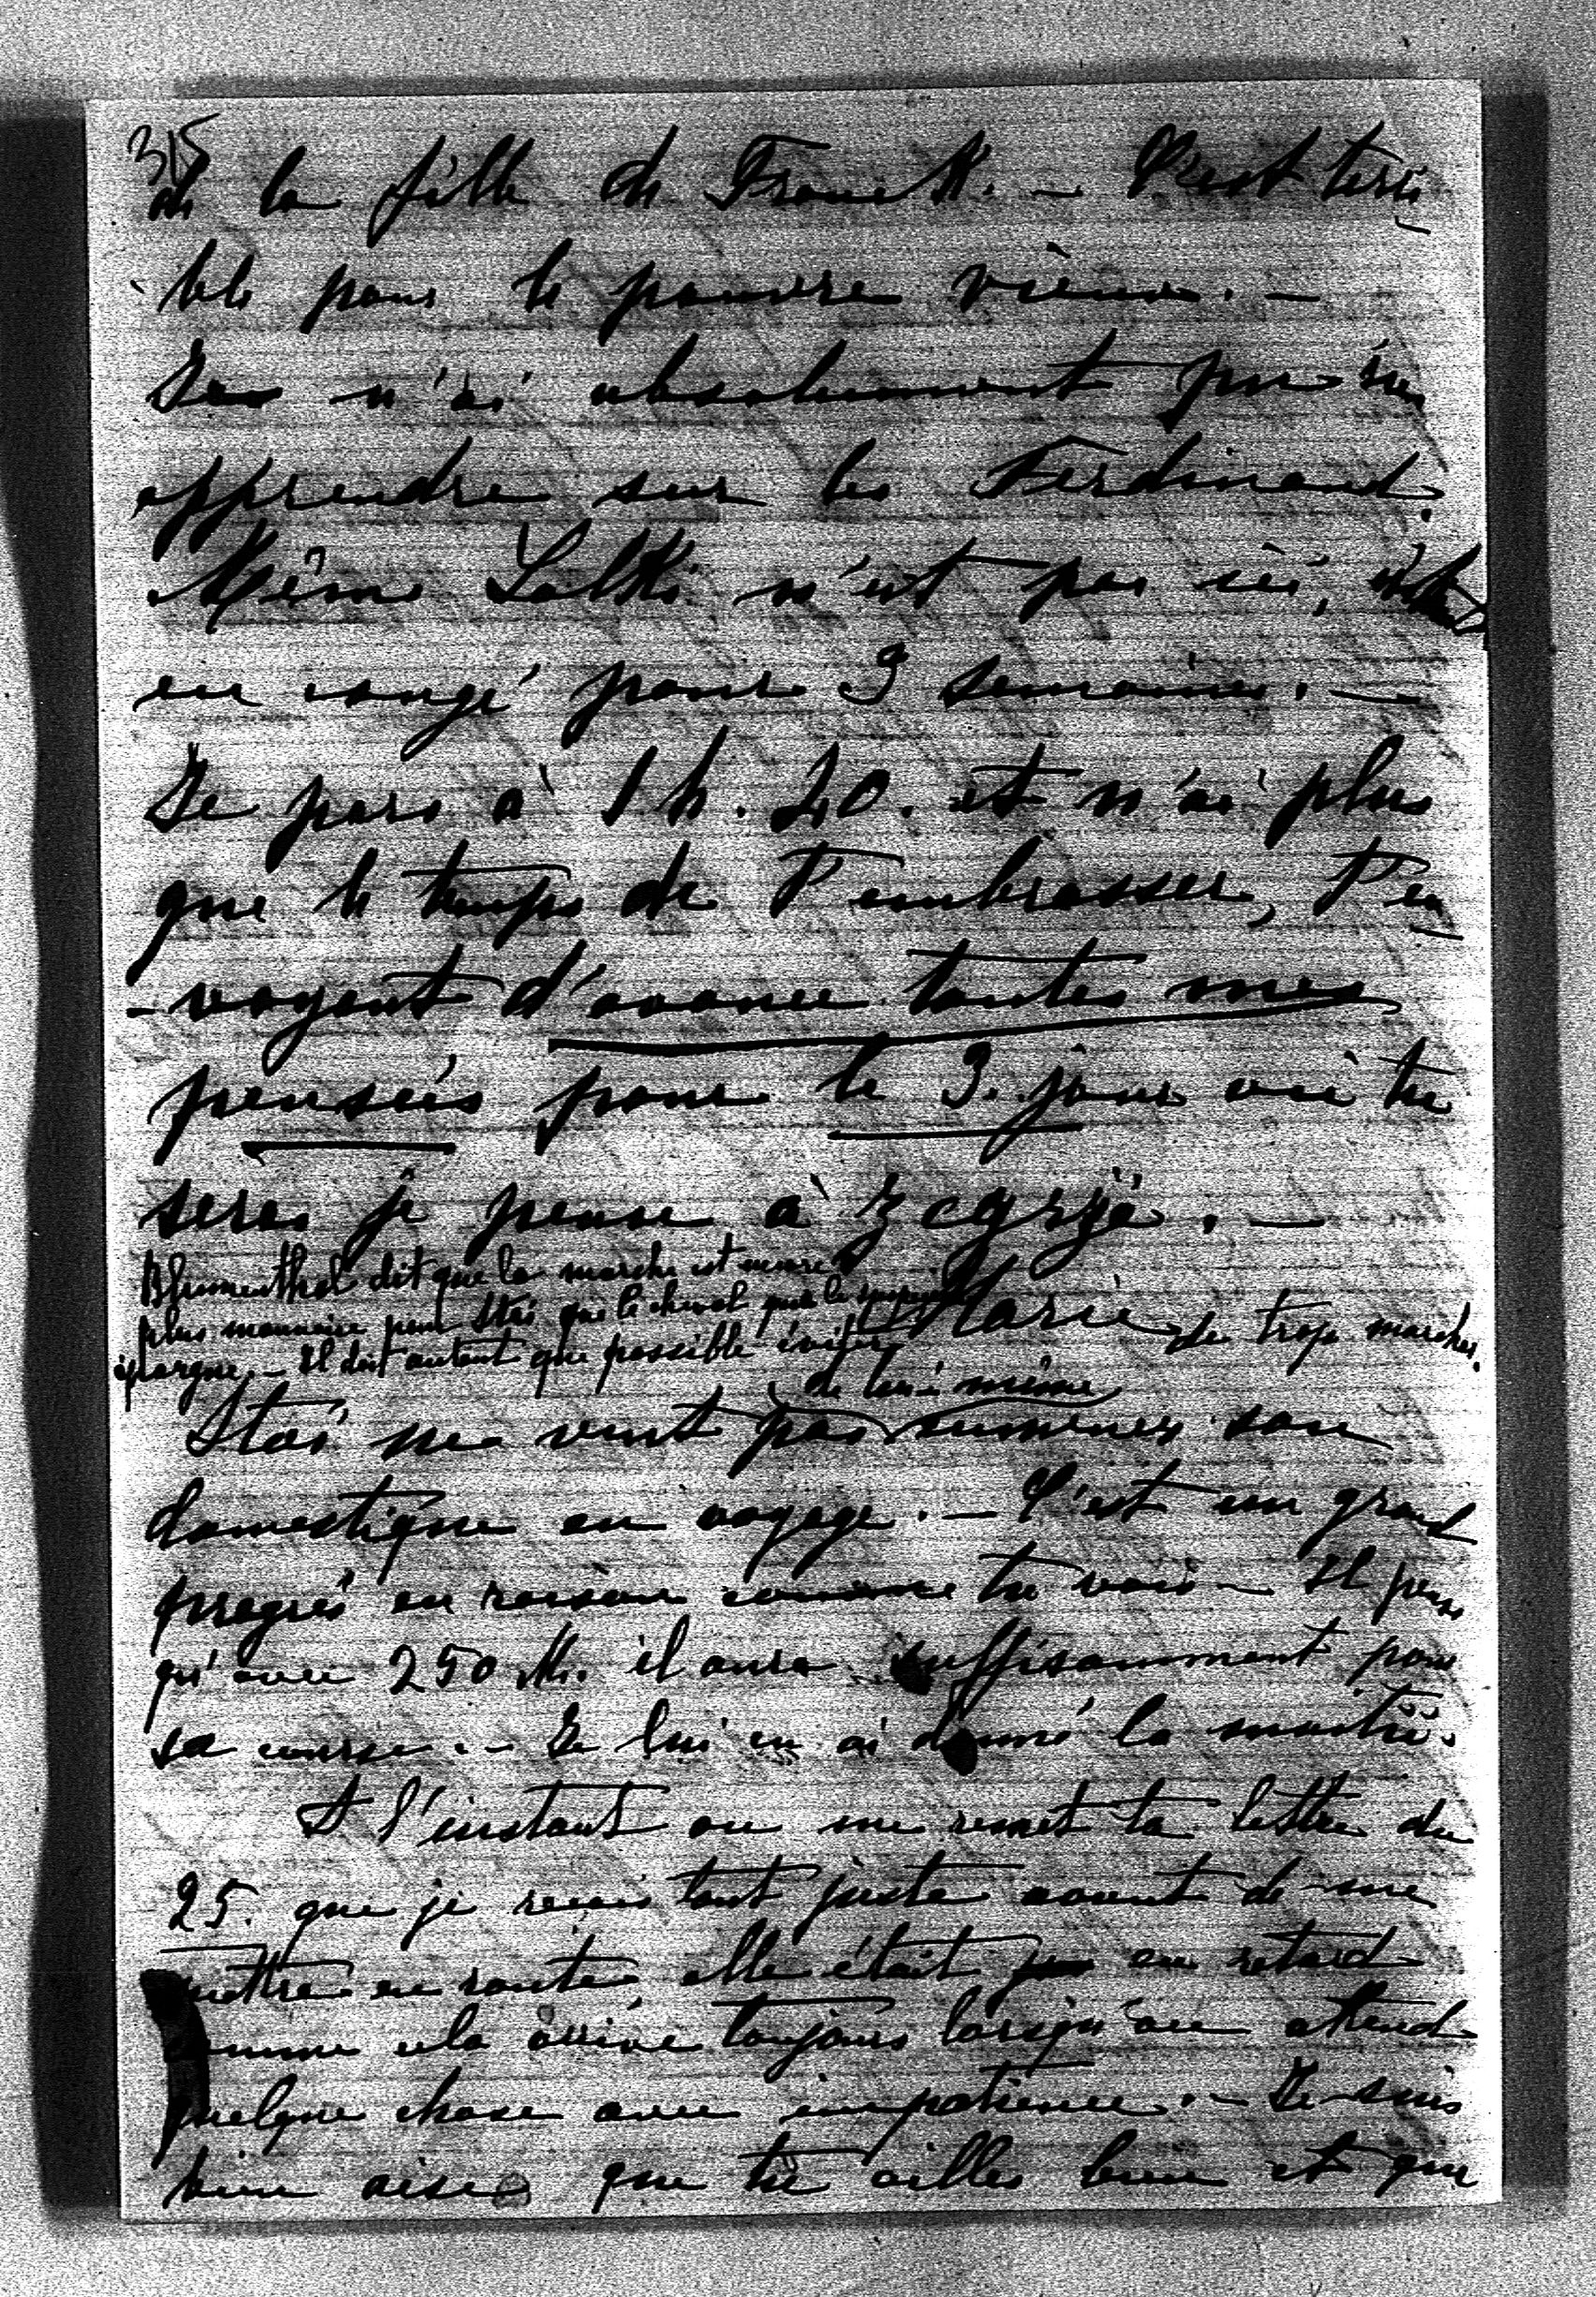 315
de la fille de Franck. – C'est terri
ble pour le pauvre vieux. –
Je n'ai absolument pu rien
apprendre sur les Ferdinand.
Même Lolki n'est pas ici,
en congé pour 3 semaines. –
Je pars à 1 h. 40. et n'ai plus
que le temps de t'embrasser, t'en
-voyant d'avance toutes mes
pensées pour le 3. jour où tu
seras je pense à Zegrze. –
Blumenthal dit que la marche est encore
plus mauvaise pour Staś que le cheval que le
épargne. – Il doit autant que possible éviter de trop marcher.
Marie
de lui-même
Staś ne veut pas emmener son
domestique en voyage. – C'est un grand
progrès en raison comme tu vois – Il pense
qu'avec 250 M. il aura suffisamment pour
sa course. – Je lui en ai donné la moitié.
A l'instant on me remet ta lettre du
25. que je reçois tout juste avant de me
mettre en route, elle était en retard
comme cela arrive toujours lorsqu'on attend
quelque chose avec impatience. – Je suis
bien aise que tu ailles bien et que